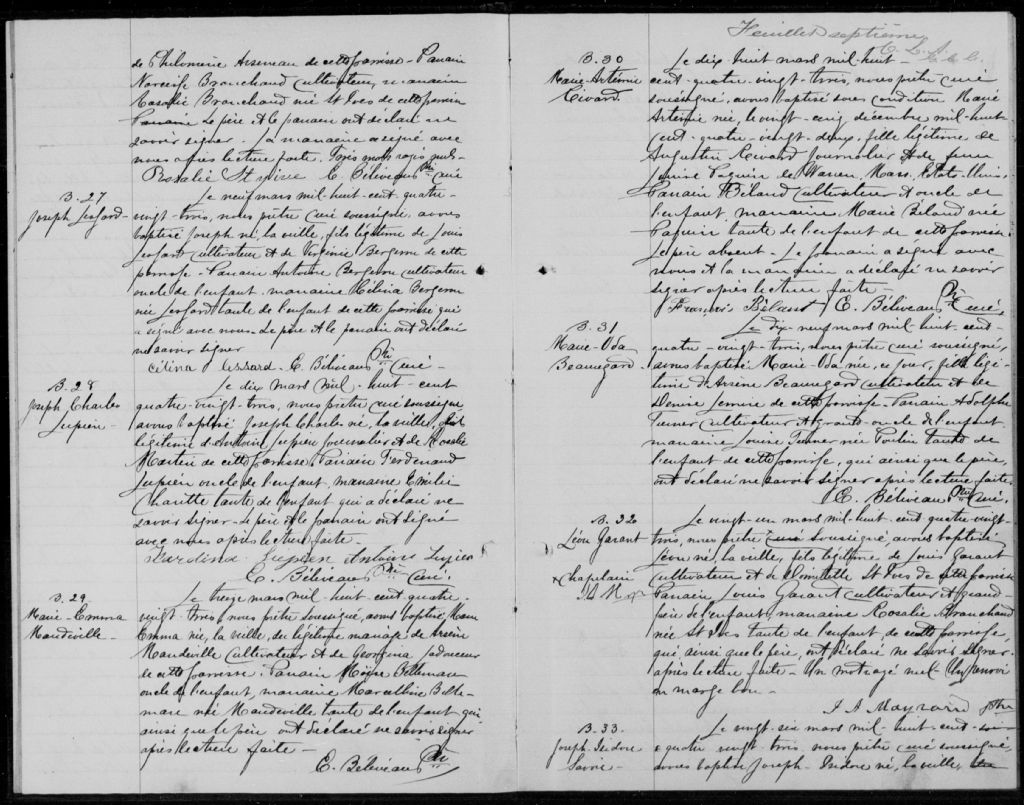 de Philomène Arseneau de cette paroisse. Parrain
Narcisse Branchaud cultivateur, marraine
Rosalie Branchaud née St Yves de cette paroisse
Parraine Le père et le parrain ont déclaré ne
savoir signer. La marraine a signé avec
nous après lecture faite. Trois mots rayés nuls.
Rosalie St yves E. Béliveau Ptre curé
B. 27
Joseph Lessard
Le neuf mars mil-huit-cent-quatre-
vingt-trois, nous prêtre curé soussigné, avons
baptisé Joseph né, la veille, fils légitime de Louis
Lessard cultivateur et de Virginie Bergeron de cette
paroisse. Parrain Antoine Bergeron cultivateur
oncle de l'enfant, marraine Célina Bergeron
née Lessard tante de l'enfant de cette paroisse qui
a signé avec nous. Le père et le parrain ont déclaré
ne savoir signer
Célina Lessard E. Béliveau Ptre curé
B. 28
Joseph Charles
Lupien
Le dix mars mil-huit-cent
quatre-vingt-trois, nous prêtre curé soussigné
avons baptisé Joseph Charles né, la veille, fils
légitime d'Antoine Lupien journalier et de Rosalie
Martin de cette paroisse. Parrain Ferdinand
Lupien oncle de l'enfant, marraine Emilie
tante de l'enfant qui a déclaré ne
savoir signer. Le père et le parrain ont signé
avec nous après lecture faite
Lupien Antoine Lupien
E. Béliveau Ptre curé.
B. 29
Marie-Emma
Mandeville
Le treize mars mil-huit-cent-quatre-
vingt-trois, nous prêtre soussigné, avons baptisé Marie
Emma née, la veille, du légitime mariage de
Mandeville cultivateur et de Georgina Ladouceur
de cette paroisse. Parrain Moïse Bellemare
oncle de l'enfant, marraine Marcelline Belle-
mare née Mandeville tante de l'enfant qui
ainsi que le père ont déclaré ne savoir signer
après lecture faite
E. Béliveau Ptre
Feuillet septième
B. 30
Marie-Artémie
Rivard
Le dix huit mars mil-huit-
cent-quatre-vingt-trois, nous prêtre curé
soussigné, avons baptisé sous condition Marie
Artémie née, le vingt-cinq décembre mil-huit-
cent-quatre-vingt-deux, fille légitime de
Augustin Rivard journalier et de feue
Paquin de Warren, Mass. Etats-Unis.
Parrain Béland cultivateur et oncle de
l'enfant, marraine Marie Béland née
Paquin tante de l'enfant de cette paroisse
Le père absent. Le parrain a signé avec
nous et la marraine a déclaré ne savoir
signer après lecture faite
François Béland E. Béliveau Ptre curé.
B. 31
Marie-Oda
Beauregard
Le dix-neuf mars mil-huit-cent-
quatre-vingt-trois, nous prêtre curé soussigné,
avons baptisé Marie-Oda née, ce jour, fille légi-
time d'Arsène Beauregard cultivateur et de
Denise de cette paroisse. Parrain Adolphe
cultivateur et grand-oncle de l'enfant,
marraine Louise née Poulin tante de
l'enfant de cette paroisse, qui ainsi que le père,
ont déclaré ne savoir signer après lecture faite.
E. Béliveau Ptre curé.
B. 32
Léon Garant
Le vingt-un mars mil-huit-cent quatre vingt-
trois, nous prêtre curé soussigné, avons baptisé
Léon né, la veille, fils légitime de Louis Garant
x Chapelain
cultivateur et de St Yves de cette paroisse
Parrain Louis Garant cultivateur et grand-
père de l'enfant, marraine Rosalie Branchaud
née St Yves tante de l'enfant de cette paroisse,
qui ainsi que le père, ont déclaré ne savoir signer
après lecture faite. Un mot rayé nul. Un renvoi
en marge bon.
J. A. Maynard Ptre
B. 33
Joseph-Isidore
Savoie
Le vingt-six mars mil-huit-cent-
quatre vingt-trois nous prêtre curé soussigné,
avons baptisé Joseph-Isidore né, la veille,